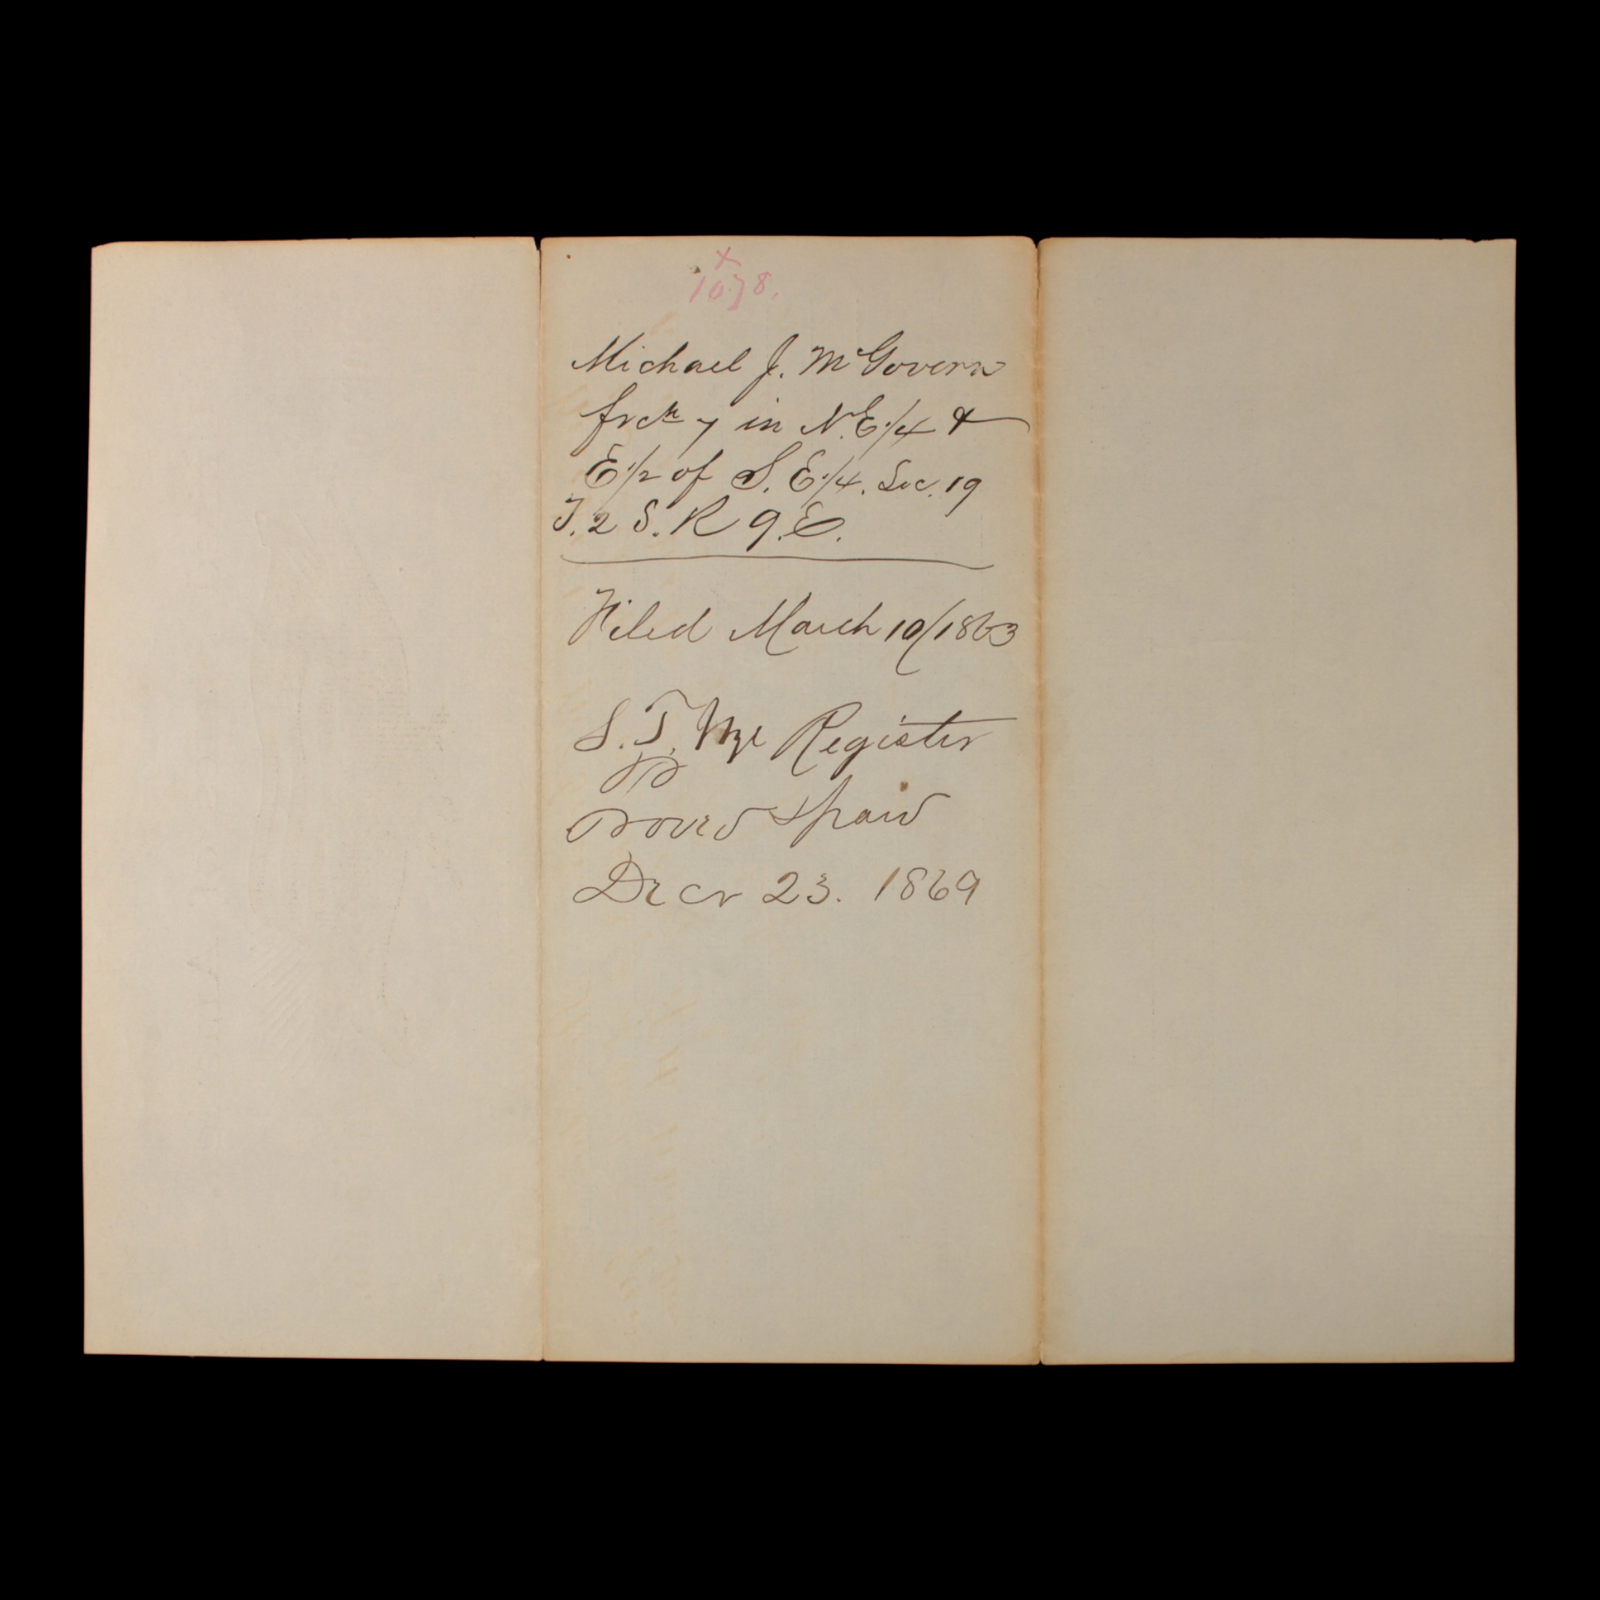 x
1078.
Michael J. McGovern
frcl 7 in N.E. 1/4 &
E 1/2 of S. E 1/4. Sec. 19
T. 2 S. R 9. E.
Filed March 10/1863
S. T. Nye Register
Proved & paid
Decr 23. 1869